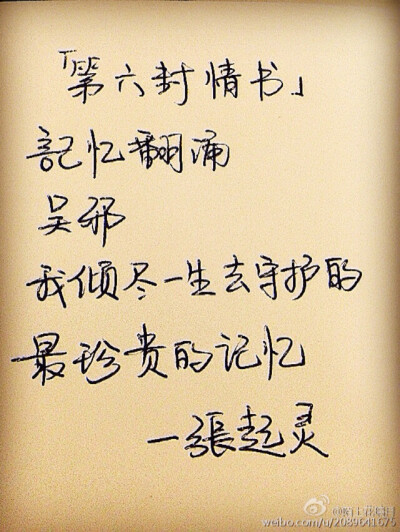 「第六封情书」
記忆翻涌
吴邪
我倾尽一生去守护的
最珍贵的记忆
—張起灵
weibo.com/u/2089611675